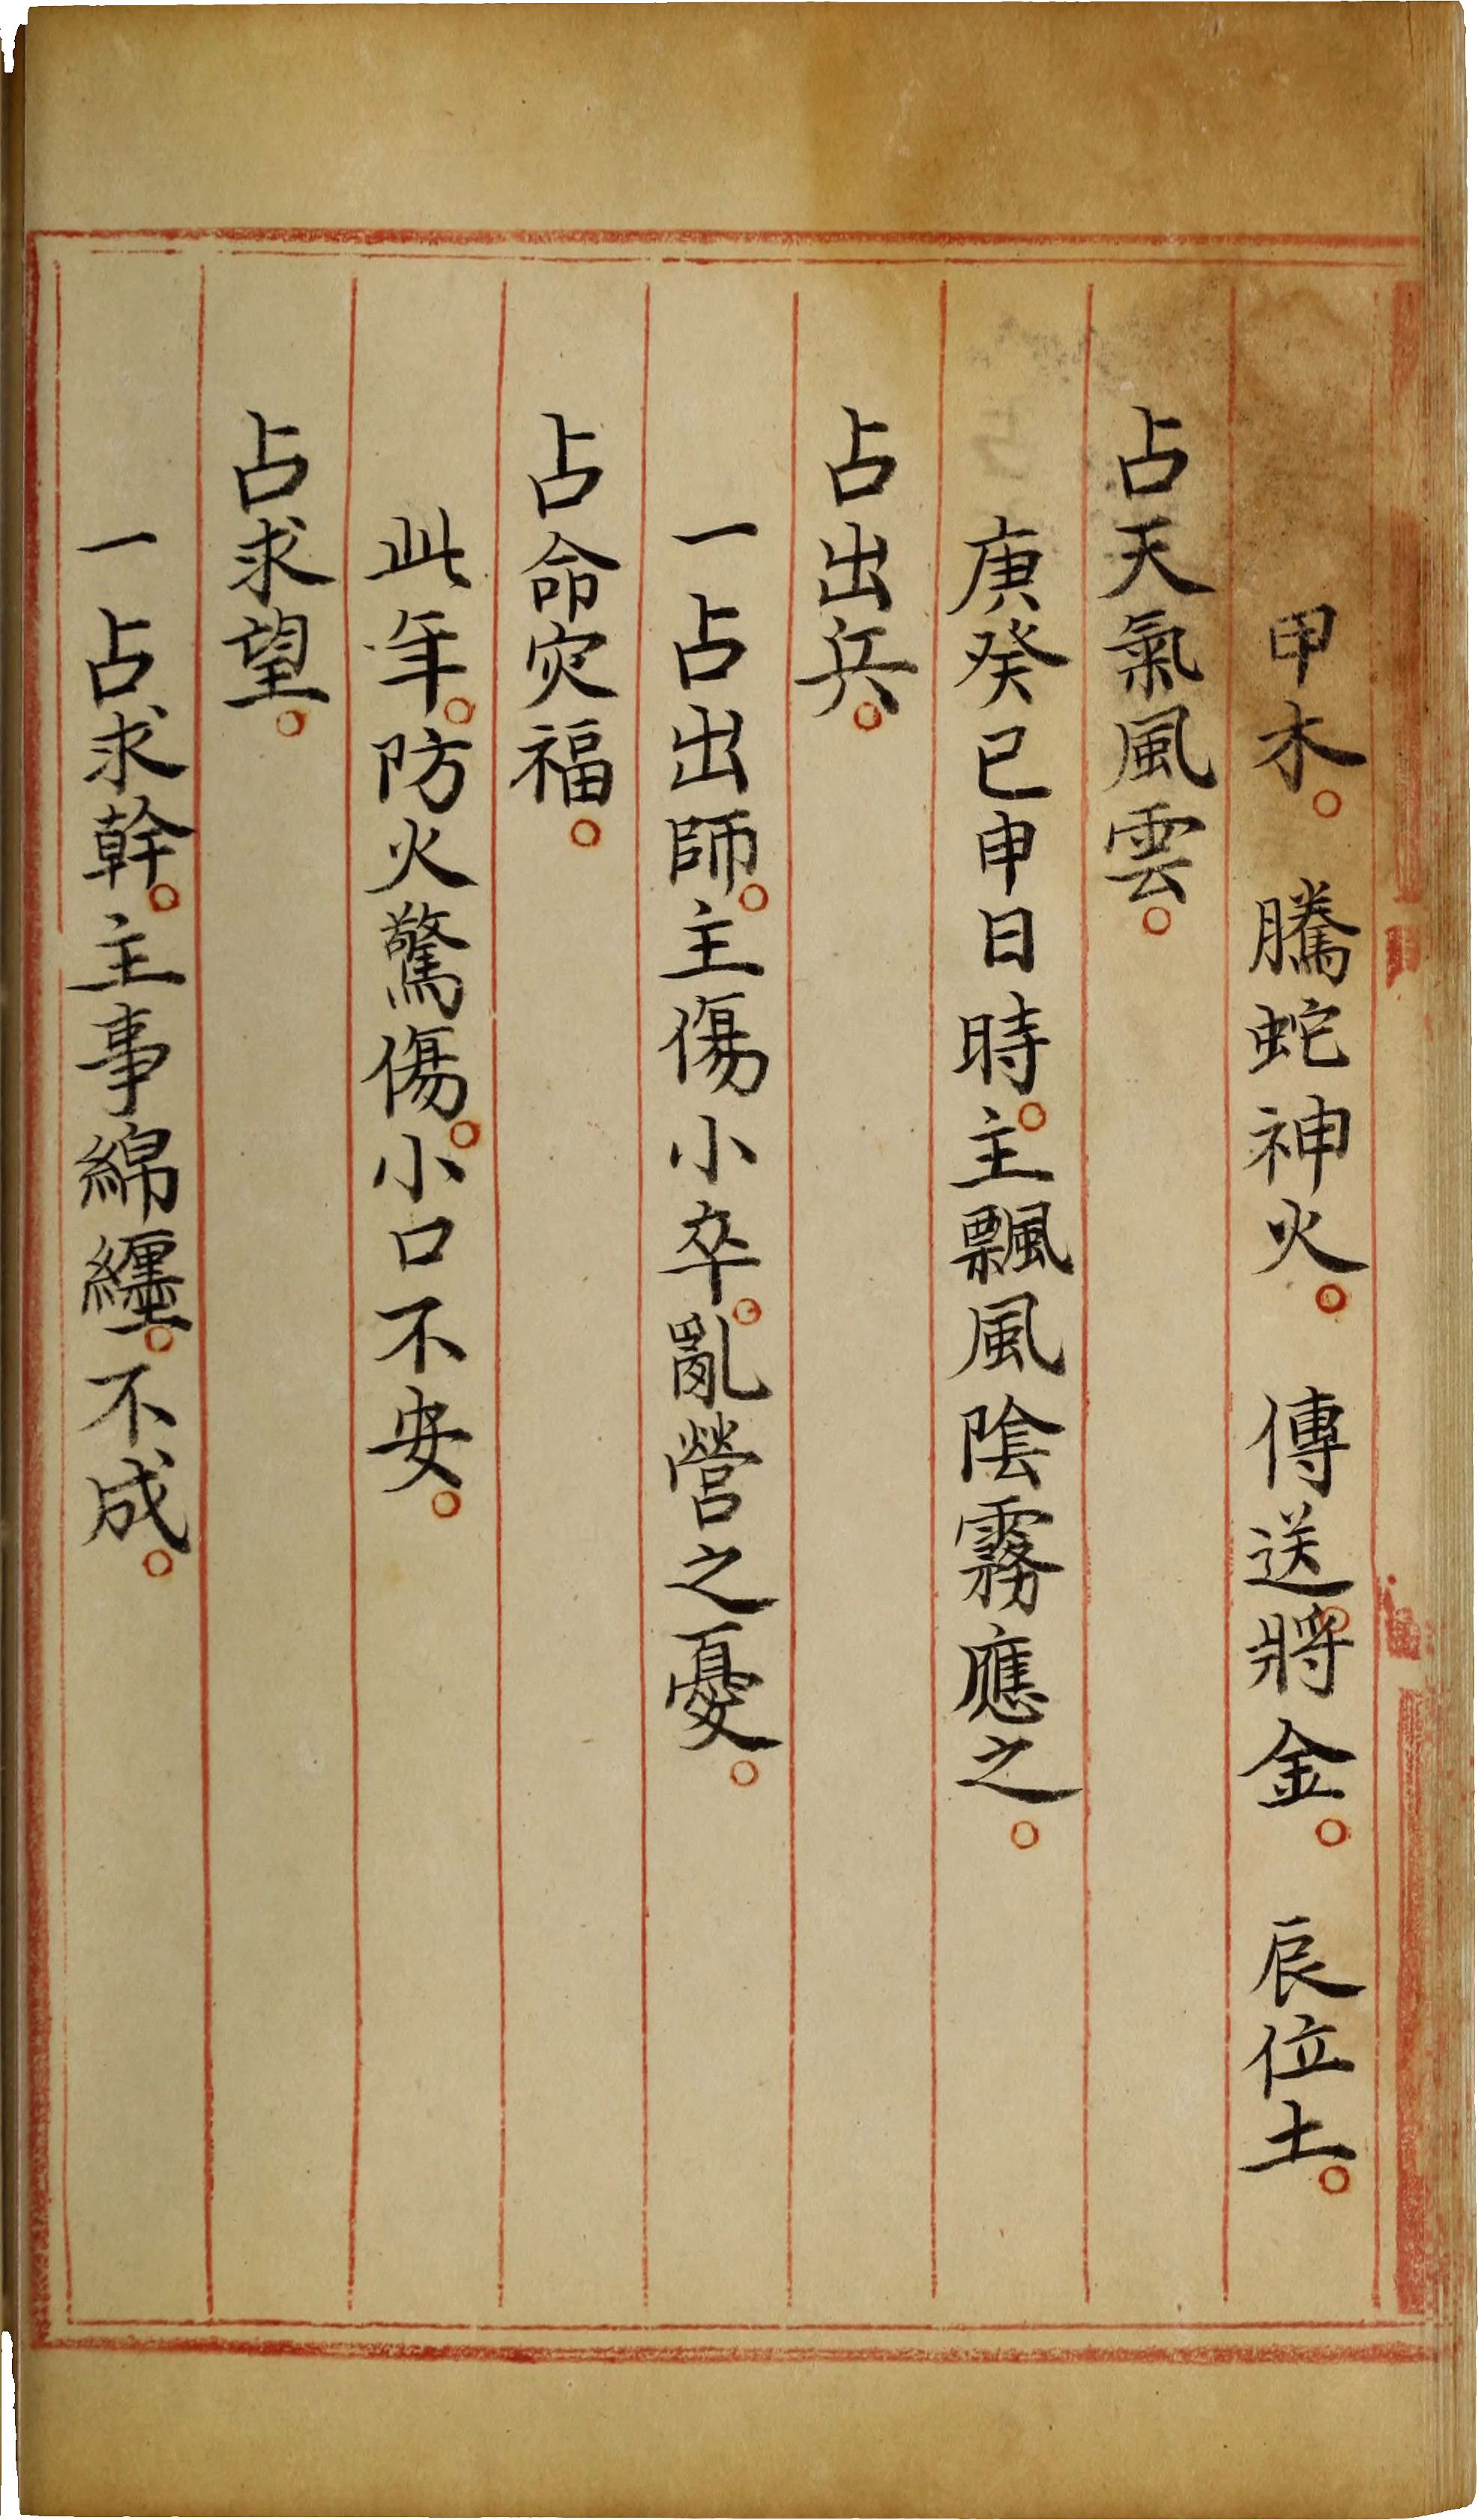 甲木。　騰蛇神火。　傳送。將金。　辰位土。
占天氣風雲。
庚癸巳申日時。主飄風陰霧應之。
占出兵。
一占出師。主傷小卒。亂營之憂。
占命灾福。
此年。防火驚傷。小口不安。
占求望。
一占求幹。主事綿纏。不成。